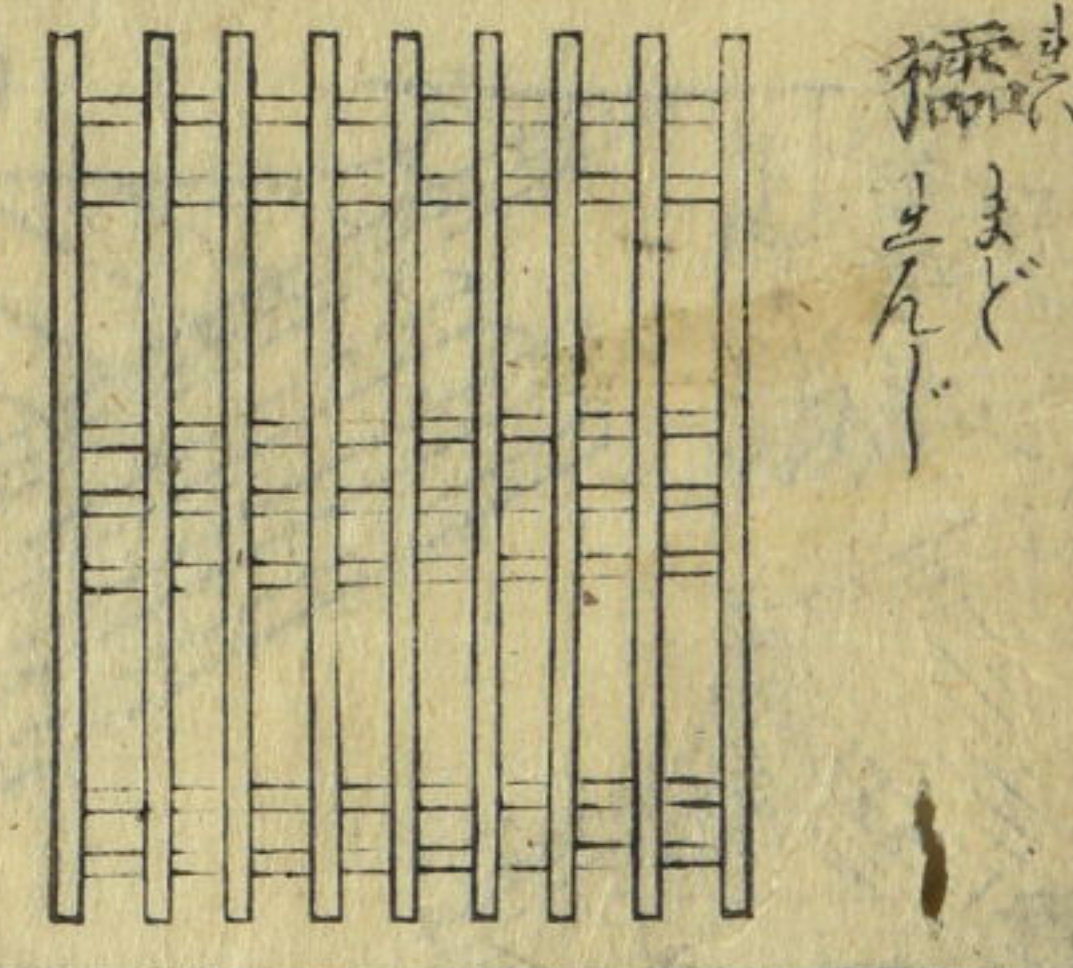 櫺
まど
れんじ